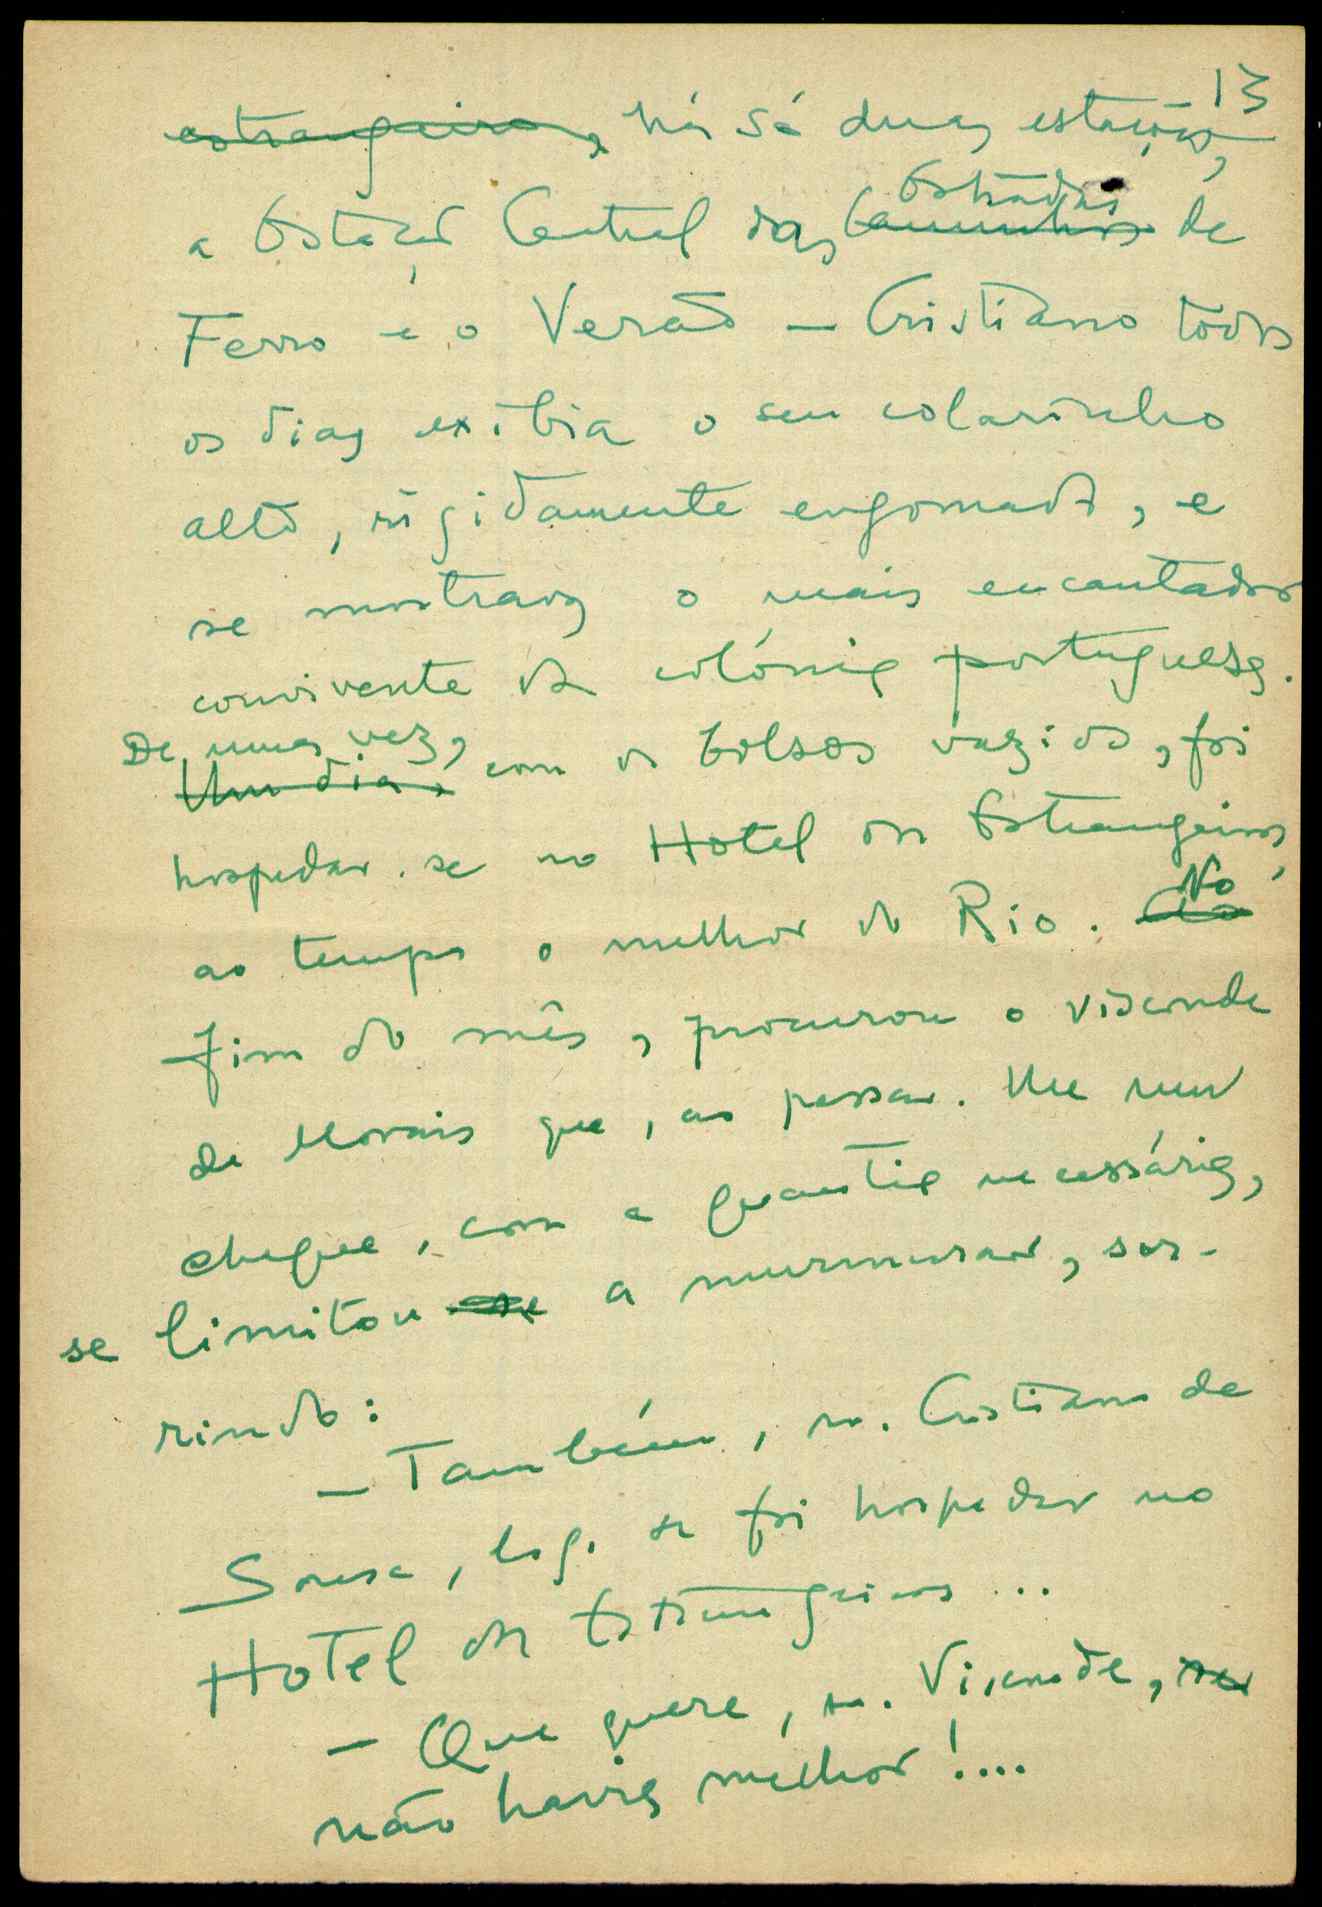 13
estrangeiros, há só duas estações,
Estradas
a Estação Central das Caminhos de
Ferro e o Verão — Cristiano todos
os dias exibia o seu colarinho
alto, rigidamente engomado, e
se mostrava o mais encantador
convivente da colónia portuguesa.
De uma vez,
Um dia, com os bolsos vazios, foi
hospedar-se no Hotel dos Estrangeiros,
No
ao tempo o melhor do Rio. Ao
fim do mês, procurou o visconde
de Morais que, ao passar-lhe um
cheque, com a quantia necessária,
se limitou se a murmurar, sor-
rindo:
— Também, sr. Cristiano de
Sousa, logo se foi hospedar no
Hotel dos Estrangeiros ...
— Que quere, sr. Visconde,
não havia melhor!....